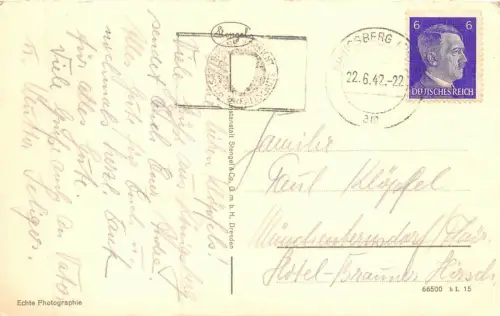 Stengel
KÖNIGSBERG
22.6.42.-22
6 6
DEUTSCHES REICH
Liebe Klöpfels!
Viele Grüße aus Königsberg
sendet Euch Eure
Alles Gute für Euch u.
nochmals herzl. Dank
für alles Gute.
Viele Grüße auch an Vater
Stengel & Co., G. m. b. H., Dresden
Familie
Paul Klöpfel
Münchenbernsdorf / Thür.
Hotel-Brauner Hirsch
Echte Photographie
66500 b L 15